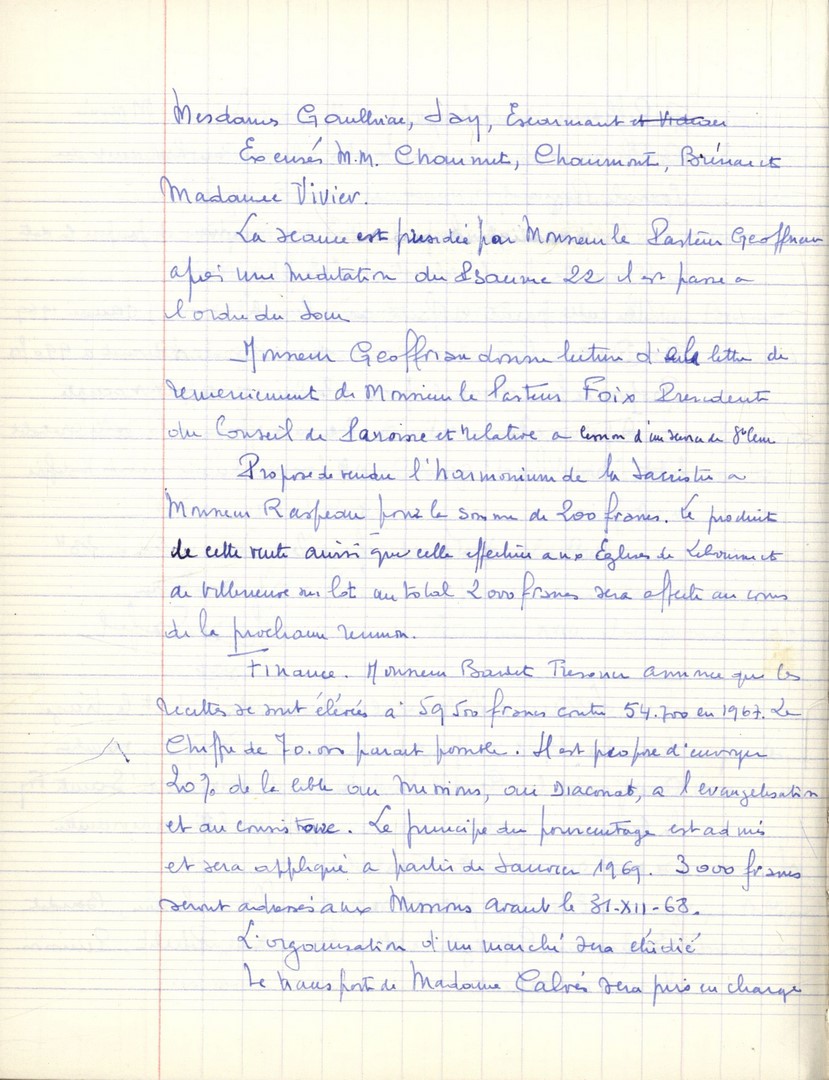 Mesdames Gaulhiac, Jay, Escarmant et Vivier
Excusés M.M. Chaumet, Chaumont, Brénac et
Madame Vivier.
La séance est présidée par Monsieur le Pasteur Geoffriau
après une méditation du Psaume 22 il est passé a
l'ordre du Jour
Monsieur Geoffriau donne lecture d' la lettre de
remerciement de Monsieur le Pasteur Foix President
du Conseil de Paroisse et relative a d'un
Propose de vendre l'harmonium de la Sacristie a
Monsieur Raspeau pour la somme de 200 francs. Le produit
de cette vente ainsi que celle effectuée aux Eglises de Libourne et
de Villeneuve sur lot au total 2000 francs sera affecté au cours
de la prochaine réunion.
Finance. Monsieur Bardet Tresorier annonce que les
recettes se sont élevées a 59 500 francs contre 54.700 en 1967. Le
Chiffre de 70.000 parait possible. Il est proposé d'envoyer
20% de la cible au Missions, au Diaconat, a l'evangelisation
et au consistoire. Le principe du pourcentage est admis
et sera appliqué a partir de Janvier 1969. 3000 francs
seront adressés aux Missions avant le 31-XII-68.
L'organisation d'un marché sera étudié
Le transport de Madame Calvès sera pris en charge